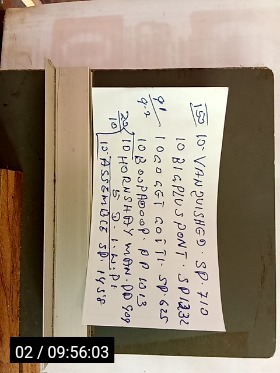 150 10 VANQUISHGD SP. 710
10 BIGPLUSPONT. SP 1232
91
9.2
1 GO GET GOITI. SP 625
10 BOOPADOOP. PP 1013
20/10
10 HORNSHAYMAN PP 909
10 ASSEMBLE SP 1458
02 / 09:56:03